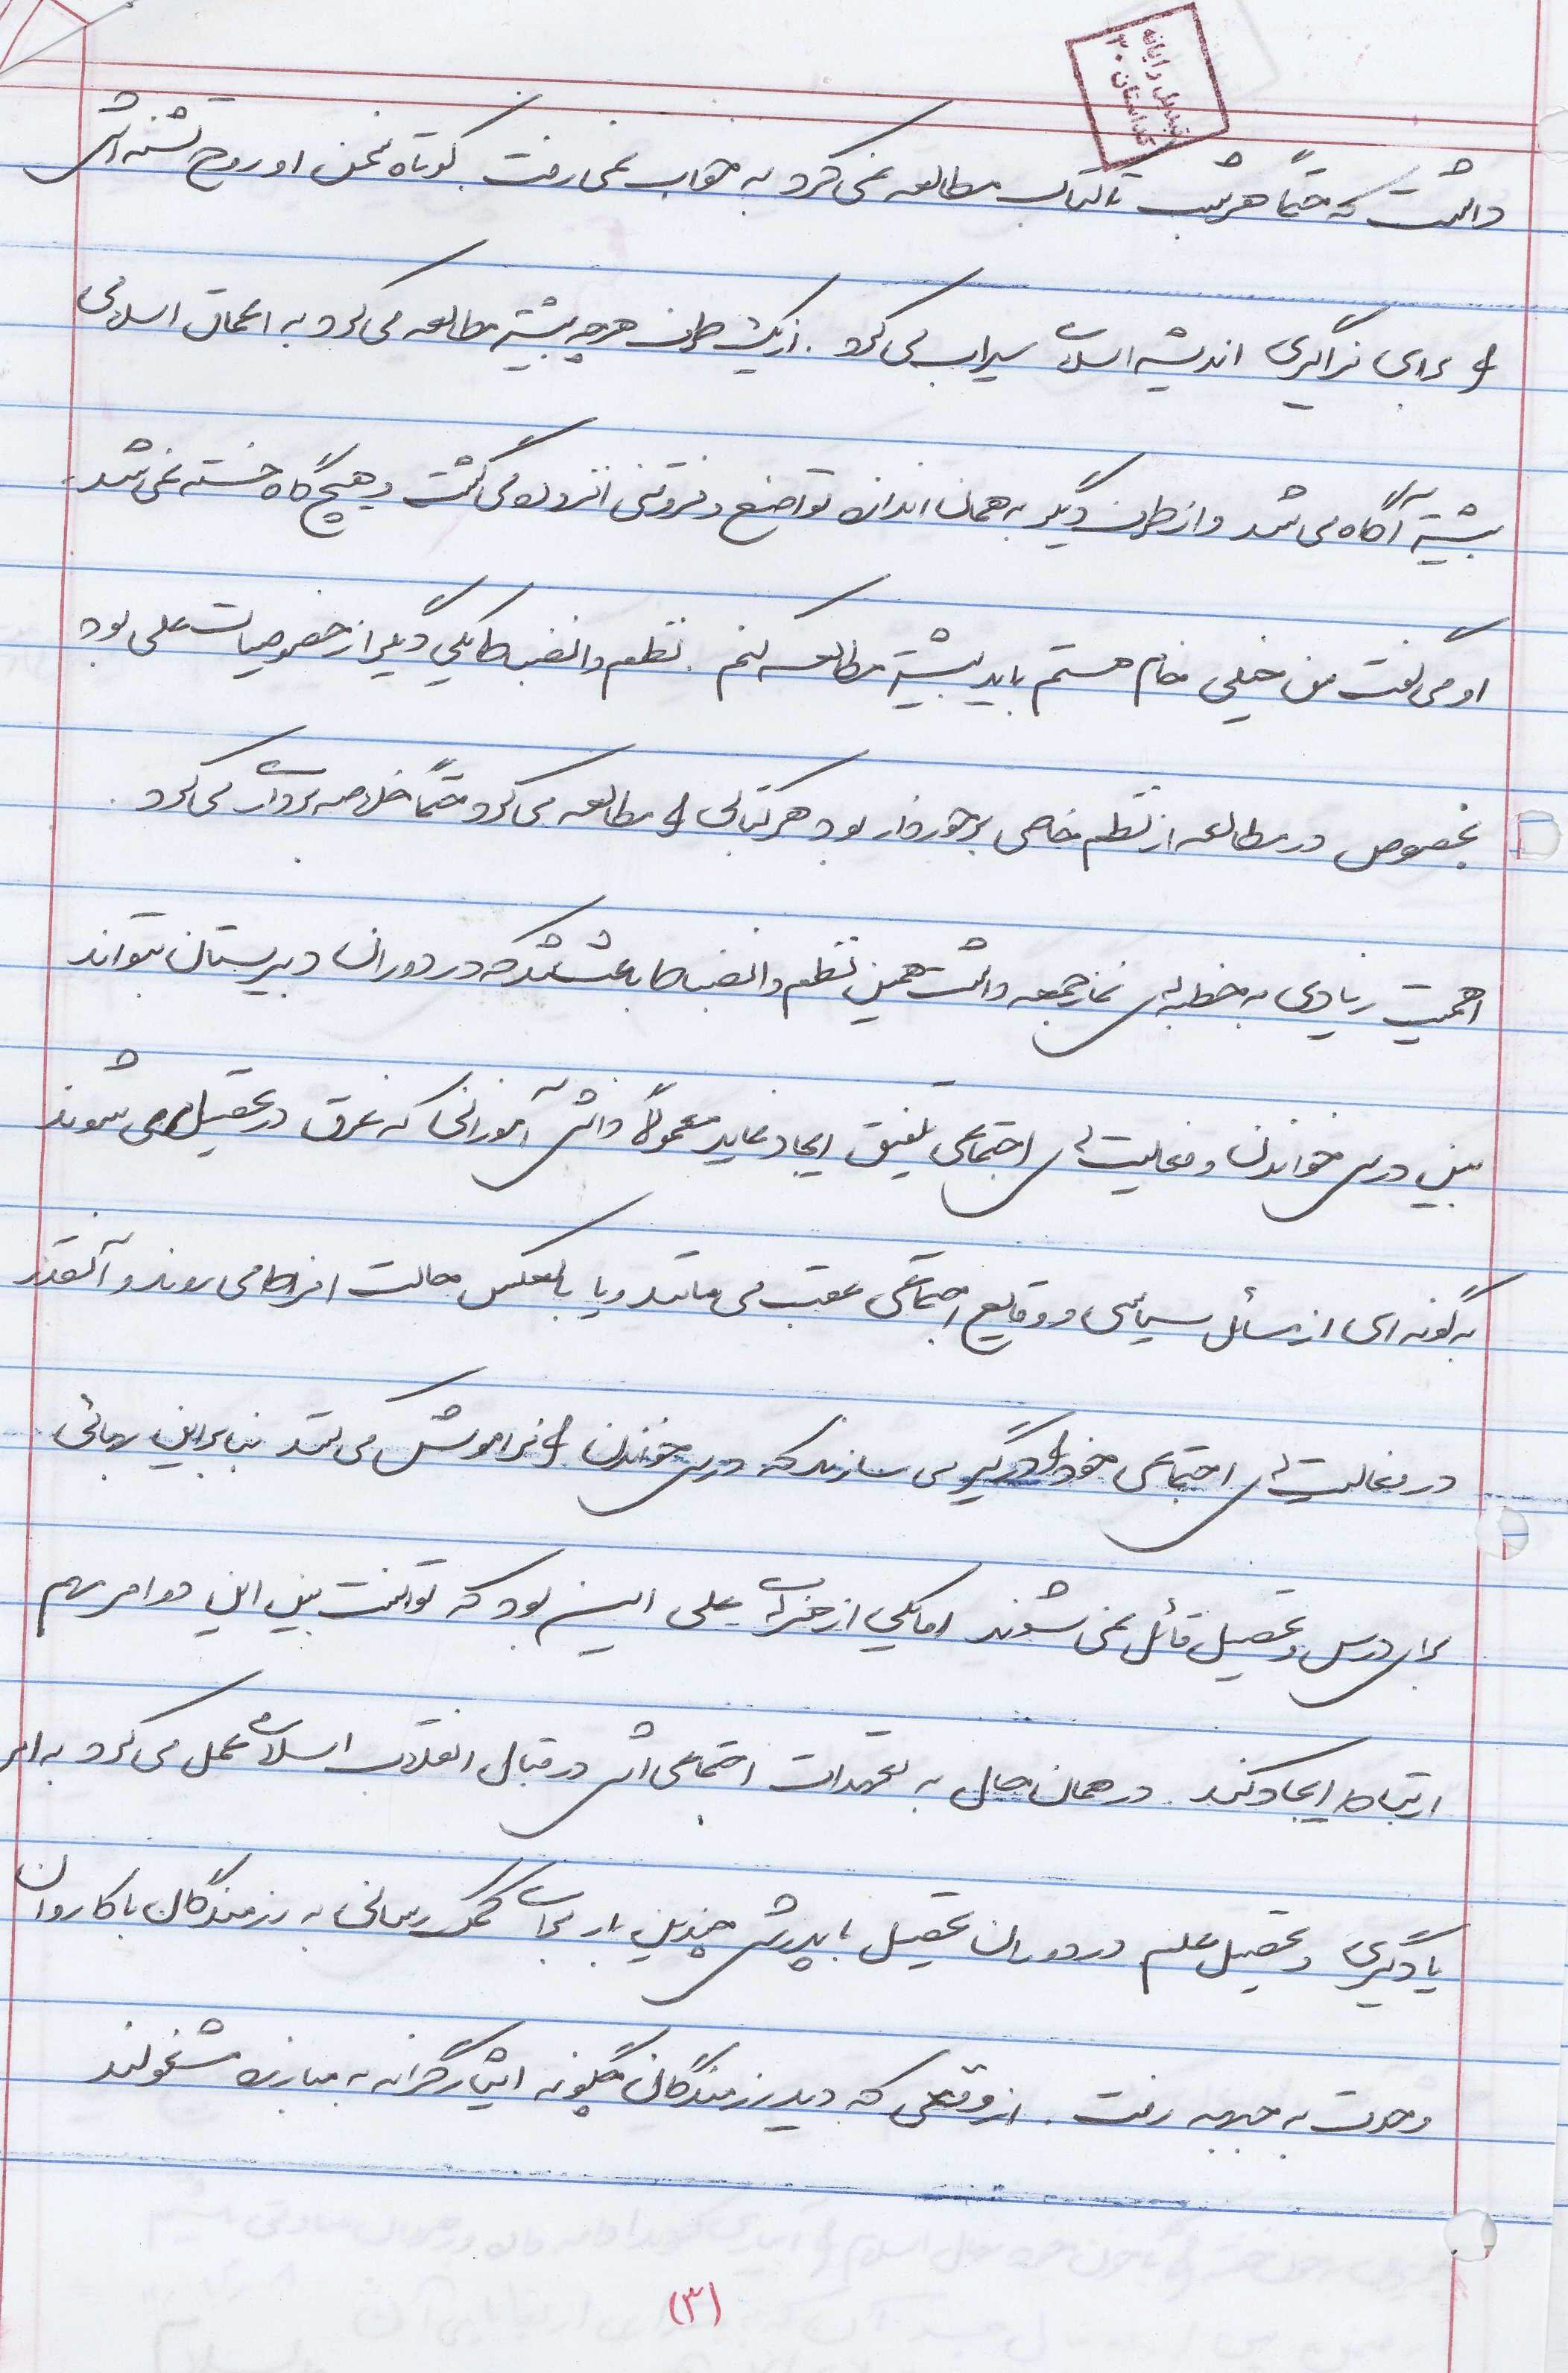 تبدیل رایانه
کد استان ۳۰
داشت که حتماً هر شب تا کتاب مطالعه نمی کرد به خواب نمی رفت. کوتاه سخن او روح تشنه اش
را برای فراگیری اندیشه اسلامی سیراب می کرد. از یک طرف هر چه بیشتر مطالعه می کرد به اعماق اسلامی
بیشتر آگاه می شد و از طرف دیگر به همان اندازه تواضع و فروتنی افزوده می گشت و هیچ گاه خسته نمی شد.
او می گفت من خیلی خام هستم باید بیشتر مطالعه کنم. نظم و انضباط یکی دیگر از خصوصیات علی بود
بخصوص در مطالعه از نظم خاصی برخوردار بود هر کتابی را مطالعه می کرد حتماً خلاصه برداری می کرد.
اهمیت زیادی به خطبه های نماز جمعه داشت همین نظم و انضباط باعث شد که در دوران دبیرستان بتواند
بین درس خواندن و فعالیت های اجتماعی تلفیق ایجاد نماید معمولاً دانش آموزانی که غرق در تحصیل می شوند
به گونه ای از مسائل سیاسی و وقایع اجتماعی عقب می مانند و یا بالعکس حالت افراط می روند و آنقدر
در فعالیت های اجتماعی خود را درگیر می سازند که درس خواندن را فراموش می کنند بنابراین بهائی
برای درس و تحصیل قائل نمی شوند اما یکی از هنرهای علی این بود که توانست بین این دو امر مهم
ارتباط ایجاد کند. در همان حال به تعهدات اجتماعی اش در قبال انقلاب اسلامی عمل می کرد به امر
یادگیری و تحصیل علم در دوران تحصیل با پدرش چندین بار برای کمک رسانی به رزمندگان با کاروان
وحدت به جبهه رفت. از وقتی که دید رزمندگان چگونه ایثارگرانه به مبارزه مشغولند
(۳)